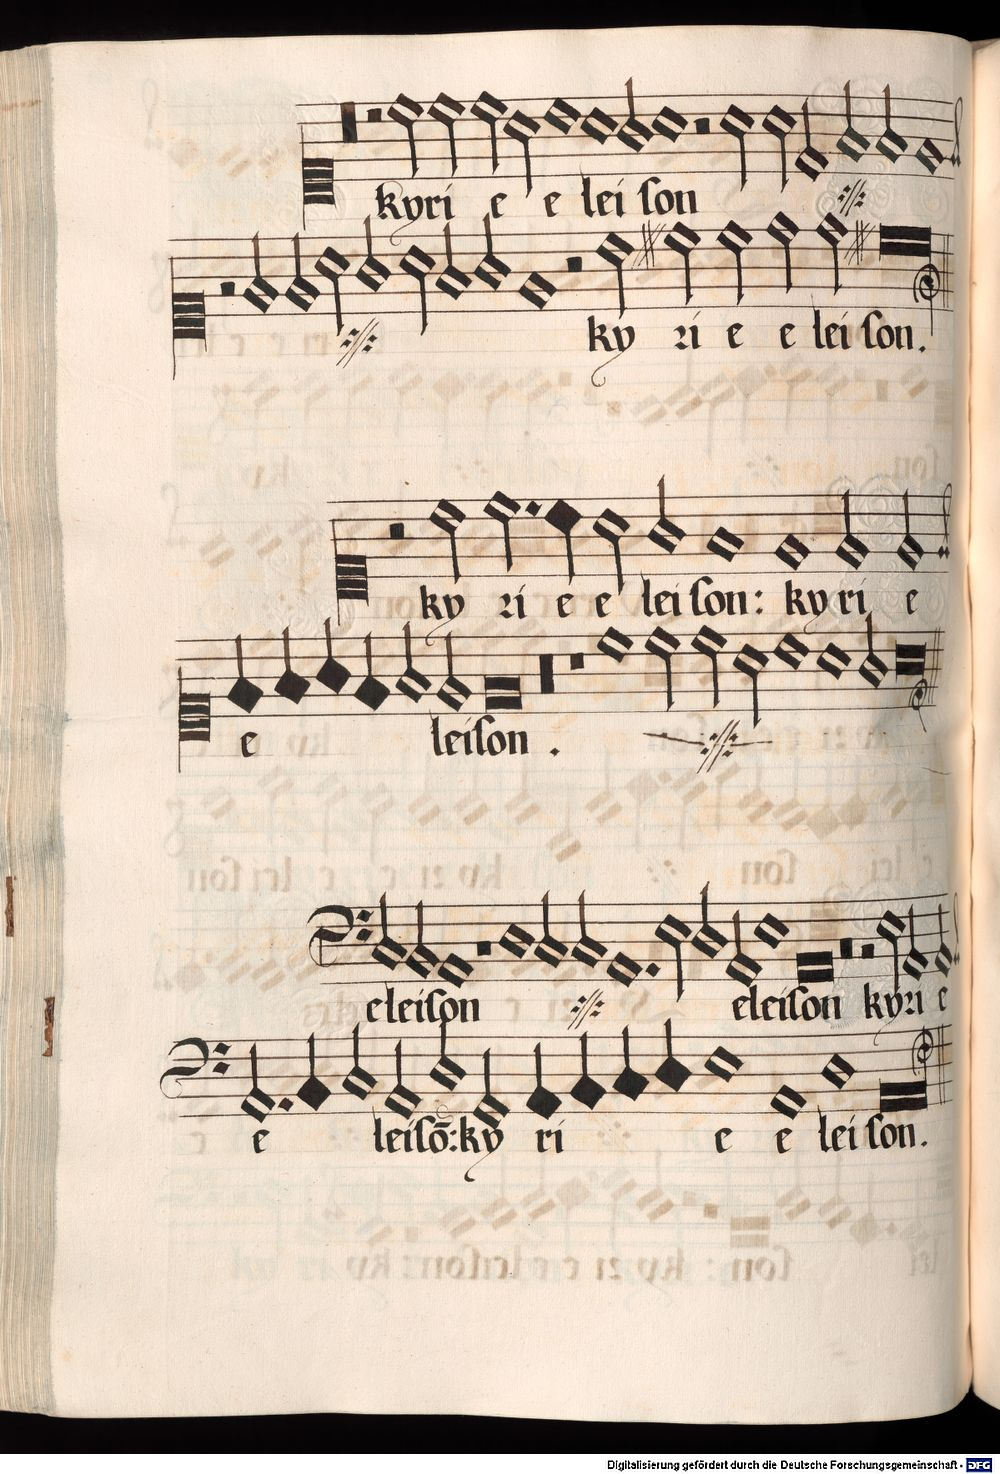 kyri e e lei ſon
ky ri e e lei ſon.
ky ri e e lei ſon: ky ri e
e leiſon .
eleiſon eleiſon kyri e
e leiſō:ky ri e e lei ſon.
Digitalisierung gefördert durch die Deutsche Forschungsgemeinschaft - DFG